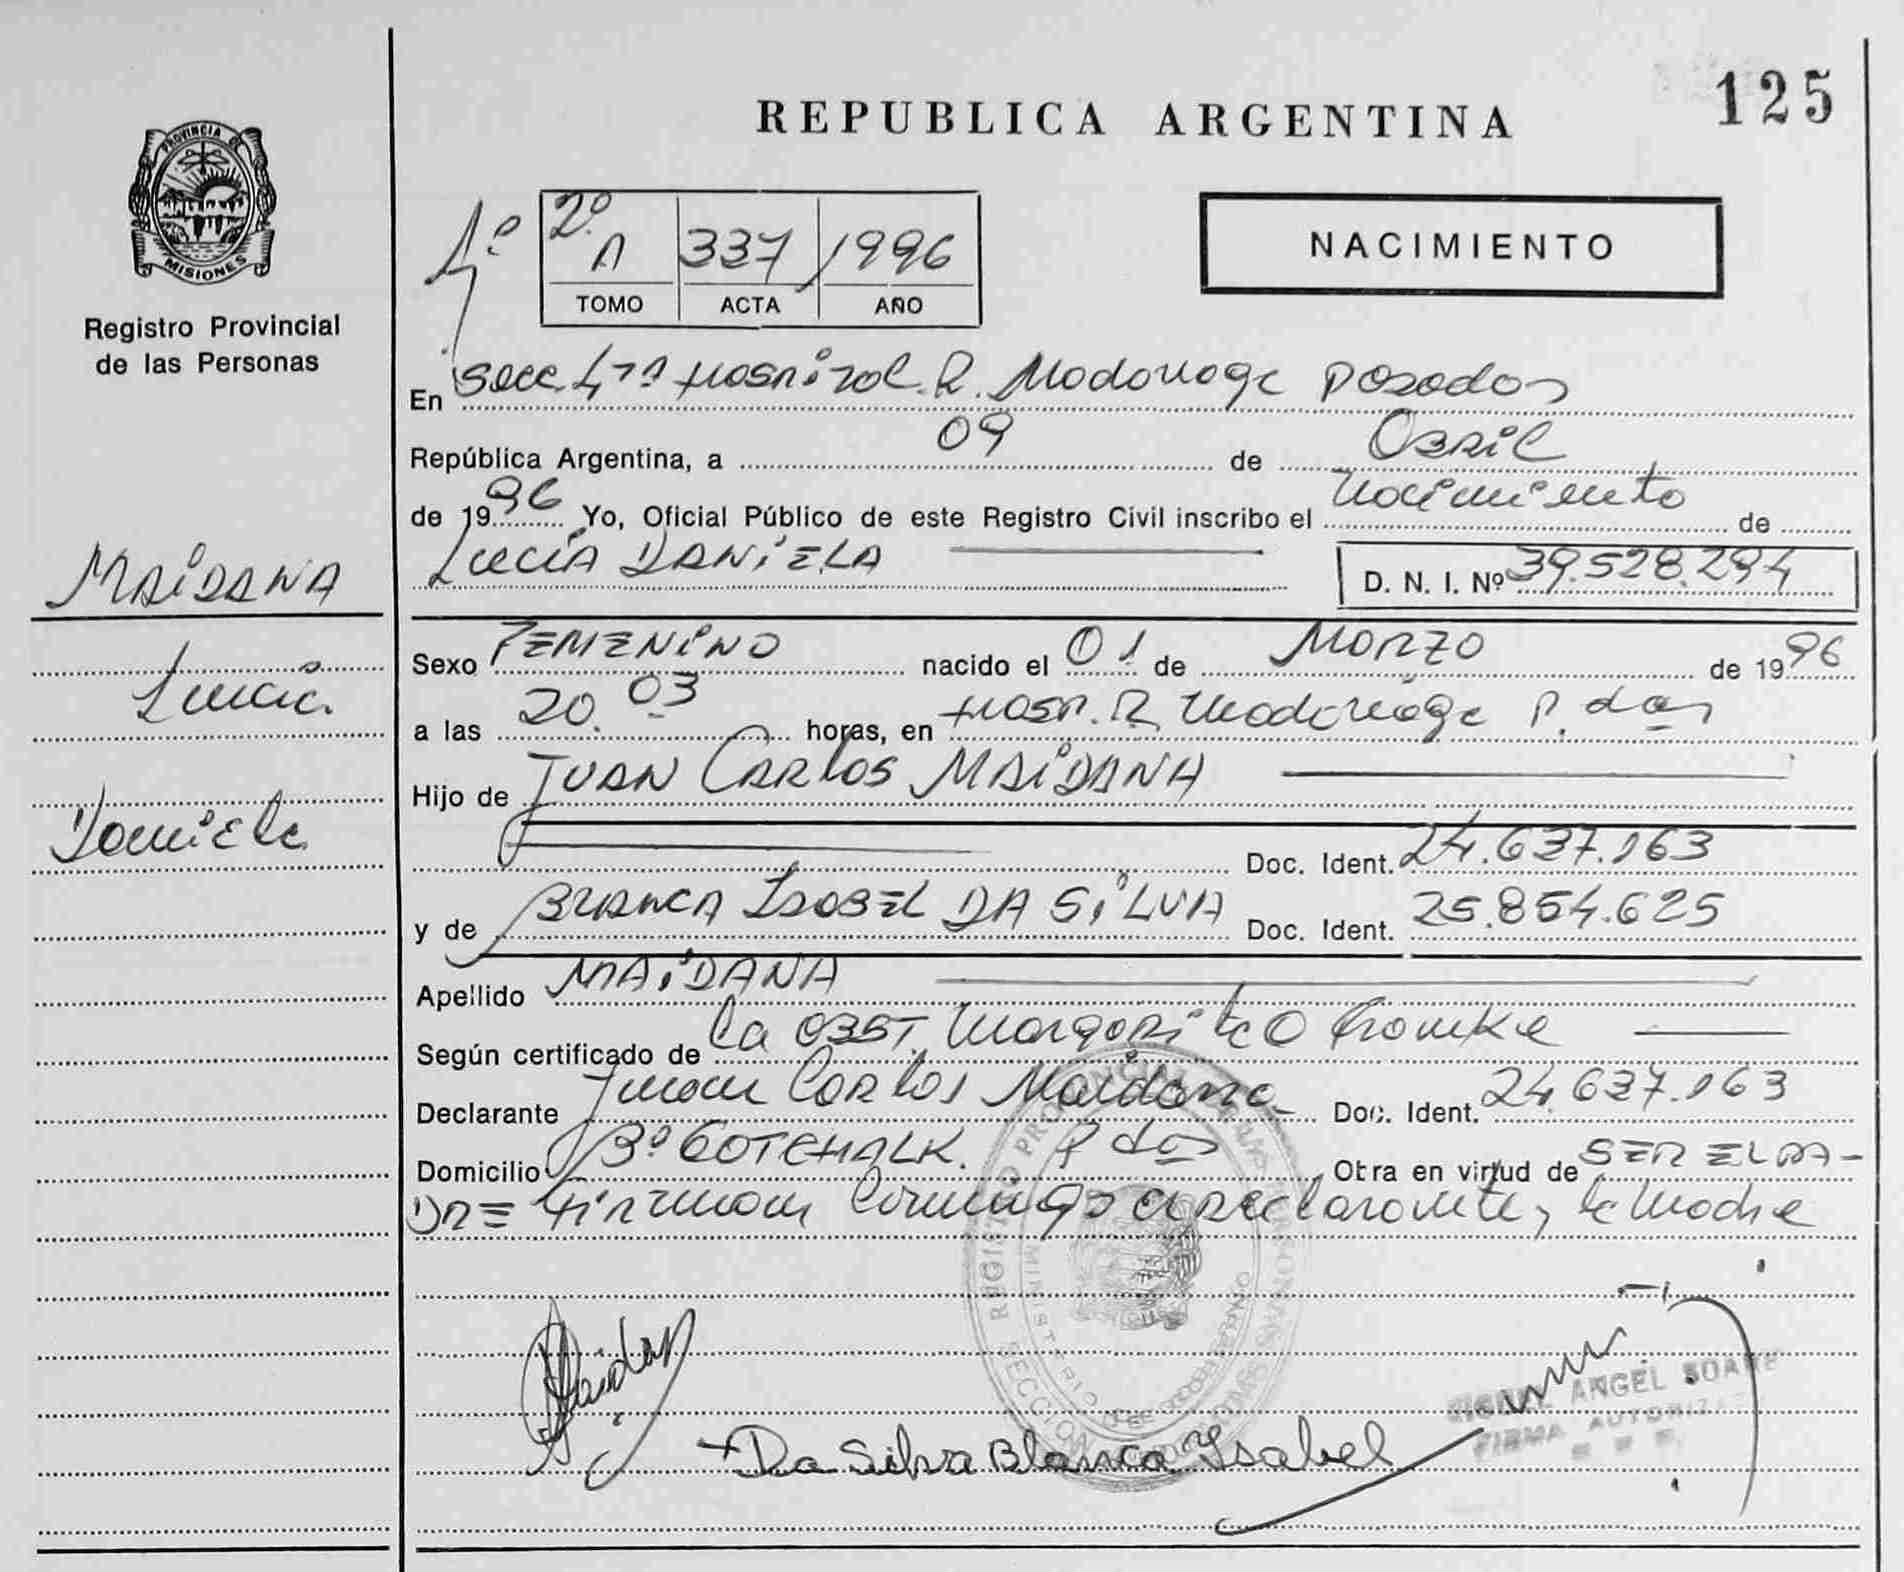 125
REPUBLICA ARGENTINA
PROVINCIA DE
MISIONES
Registro Provincial
de las Personas
4º
2º A 337 1996
TOMO ACTA AÑO
NACIMIENTO
En Secc. 4ta Hospital R. Madariaga Posadas
República Argentina, a 09 de Abril
de 1996 Yo, Oficial Público de este Registro Civil inscribo el nacimiento de
LUCIA DANIELA D. N. I. Nº 39.528.294
MAIDANA
Lucia
Daniela
Sexo FEMENINO nacido el 01 de Marzo de 1996
a las 20.03 horas, en Hosp. R. Madariaga P.das
Hijo de JUAN CARLOS MAIDANA
Doc. Ident. 24.637.163
y de BLANCA ISABEL DA SILVA Doc. Ident. 25.854.625
Apellido MAIDANA
Según certificado de la OBST. Margarita
Declarante Juan Carlos Maidana Doc. Ident. 24.637.163
Domicilio Bº GOTCHALK. P das Otra en virtud de SER EL PA-
DRE Firman conmigo el declarante, la madre
REGISTRO PROVINCIAL DE LAS PERSONAS
MINISTERIO DE GOBIERNO
SECCION
Maidana
Da Silva Blanca Ysabel
ANGEL
FIRMA AUTORIZADA